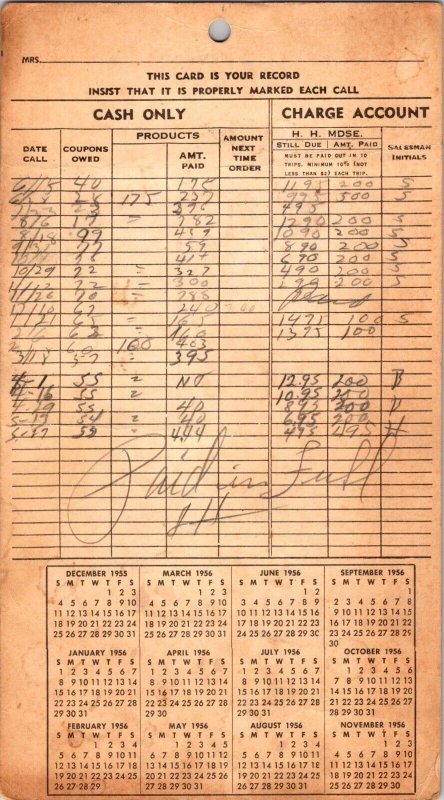 MRS.
THIS CARD IS YOUR RECORD
INSIST THAT IT IS PROPERLY MARKED EACH CALL
CASH ONLY CHARGE ACCOUNT
DATE CALL COUPONS OWED PRODUCTS AMT. PAID AMOUNT NEXT TIME ORDER H. H. MDSE. STILL DUE AMT. PAID SALESMAN INITIALS
MUST BE PAID OUT IN 10
TRIPS. MINIMUM 10% (NOT
LESS THAN $2) EACH TRIP.
6/15 40 175 11.95 200 S
175 995 300 S
495
8/6 17 " 782 1290 200 S
8/18 99 " 439 1090 200 S
59 890 200 S
690 200 S
10/29 22 " 327 490 200 S
300 200
788
62 240
1475 100 S
1375 100
160 403
3/18 37 " 395
4-1 55 " NO 12.95 200 B
4-16 55 " 10.95 200
4-29 55 40 8.95 200
5-13 54 " 40 6.95 200
5-27 55 " 494 495 495 H
Paid in Full
H
DECEMBER 1955 MARCH 1956 JUNE 1956 SEPTEMBER 1956
S M T W T F S S M T W T F S S M T W T F S S M T W T F S
1 2 3 1 2 3 1 2 1
4 5 6 7 8 9 10 4 5 6 7 8 9 10 3 4 5 6 7 8 9 2 3 4 5 6 7 8
11 12 13 14 15 16 17 11 12 13 14 15 16 17 10 11 12 13 14 15 16 9 10 11 12 13 14 15
18 19 20 21 22 23 24 18 19 20 21 22 23 24 17 18 19 20 21 22 23 16 17 18 19 20 21 22
25 26 27 28 29 30 31 25 26 27 28 29 30 31 24 25 26 27 28 29 30 23 24 25 26 27 28 29
30
JANUARY 1956 APRIL 1956 JULY 1956 OCTOBER 1956
S M T W T F S S M T W T F S S M T W T F S S M T W T F S
1 2 3 4 5 6 7 1 2 3 4 5 6 7 1 2 3 4 5 6 7 1 2 3 4 5 6
8 9 10 11 12 13 14 8 9 10 11 12 13 14 8 9 10 11 12 13 14 7 8 9 10 11 12 13
15 16 17 18 19 20 21 15 16 17 18 19 20 21 15 16 17 18 19 20 21 14 15 16 17 18 19 20
22 23 24 25 26 27 28 22 23 24 25 26 27 28 22 23 24 25 26 27 28 21 22 23 24 25 26 27
29 30 31 29 30 29 30 31 28 29 30 31
FEBRUARY 1956 MAY 1956 AUGUST 1956 NOVEMBER 1956
S M T W T F S S M T W T F S S M T W T F S S M T W T F S
1 2 3 4 1 2 3 4 5 1 2 3 4 1 2 3
5 6 7 8 9 10 11 6 7 8 9 10 11 12 5 6 7 8 9 10 11 4 5 6 7 8 9 10
12 13 14 15 16 17 18 13 14 15 16 17 18 19 12 13 14 15 16 17 18 11 12 13 14 15 16 17
19 20 21 22 23 24 25 20 21 22 23 24 25 26 19 20 21 22 23 24 25 18 19 20 21 22 23 24
26 27 28 29 27 28 29 30 31 26 27 28 29 30 31 25 26 27 28 29 30